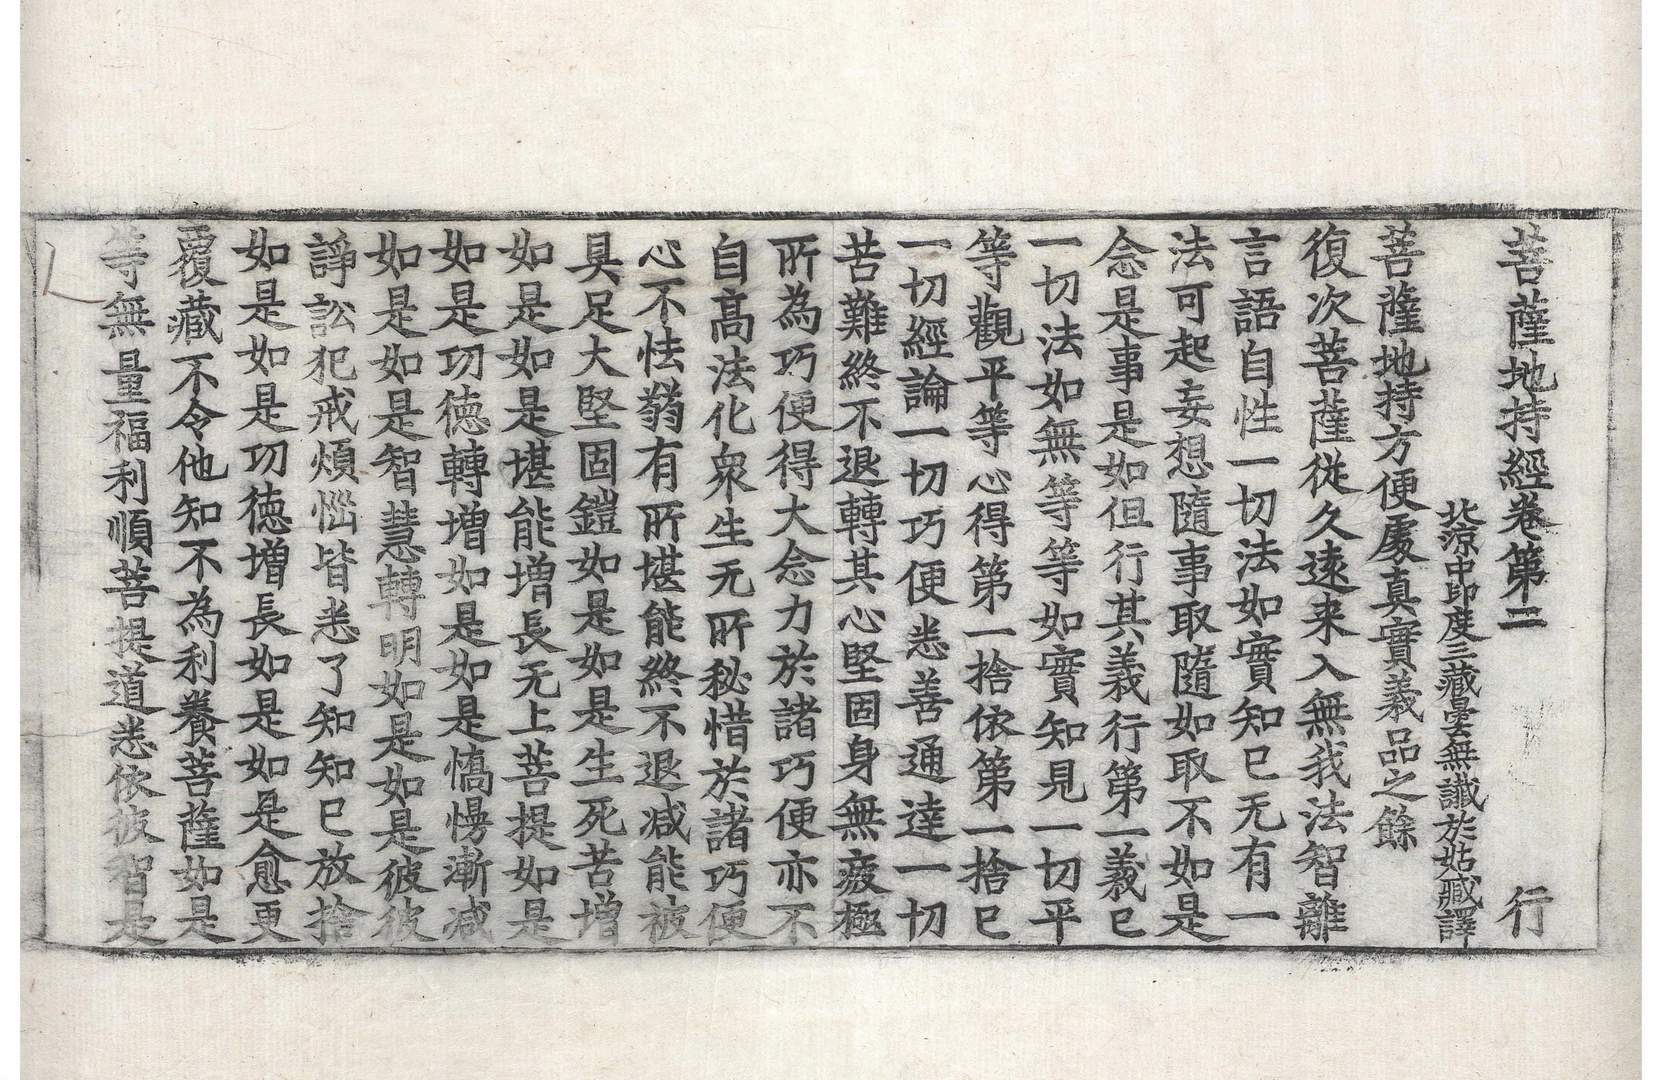 菩薩地持經卷第二　行
北涼中印度三藏曇無讖於姑臧譯
菩薩地持方便處真實義品之餘
復次菩薩從久遠来入無我法智離
言語自性一切法如實知已无有一
法可起妄想隨事取隨如取不如是
念是事是如但行其義行第一義已
一切法如無等等如實知見一切平
等觀平等心得第一捨依第一捨已
一切經論一切巧便悉善通達一切
苦難終不退轉其心堅固身無疲極
所為巧便得大念力於諸巧便亦不
自高法化衆生无所秘惜於諸巧便
心不怯弱有所堪能終不退減能被
具足大堅固鎧如是如是生死苦增
如是如是堪能增長无上菩提如是
如是功德轉增如是如是憍慢漸減
如是如是智慧轉明如是如是彼彼
諍訟犯戒煩惱皆悉了知知已放捨
如是如是功德增長如是如是愈更
覆藏不令他知不為利養菩薩如是
等無量福利順菩提道悉依彼智是